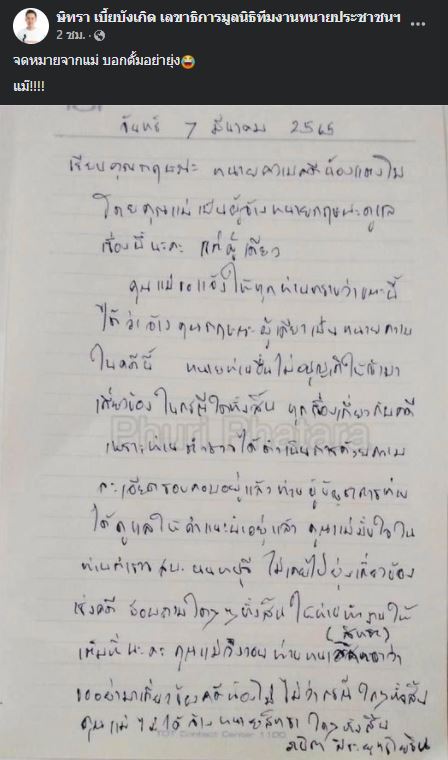 ษิทรา เบี้ยบังเกิด เลขาธิการมูลนิธิทีมงานทนายประชาชนฯ
2 ชม.
จดหมายจากแม่ บอกตั้มอย่ายุ่ง😆
แม๊!!!!
จันทร์ 7 มีนาคม 2565
เรียนคุณกฤษณะ ทนายความคดีน้องแตงโม
โดยคุณแม่เป็นผู้จ้างทนายกฤษณะดูแล
เรื่องนี้นะคะ แต่ผู้เดียว
คุณแม่ขอแจ้งให้ทุกท่านทราบว่าขณะนี้
ได้ว่าจ้างคุณกฤษณะผู้เดียวเป็นทนายความ
ในคดีนี้ ทนายท่านอื่นไม่อนุญาตให้เข้ามา
เกี่ยวข้องในกรณีใดทั้งสิ้น ทุกเรื่องเกี่ยวกับคดี
Phuri Bhatara
เพราะท่านตำรวจได้ดำเนินการด้วยความ
ละเอียดรอบคอบอยู่แล้ว ท่านผู้บัญชาการท่าน
ได้ดูแลให้คำแนะนำอยู่แล้ว คุณแม่มั่นใจใน
ท่านตำรวจ สภ. นนทบุรี ไม่เคยไปยุ่งเกี่ยวข้อง
เชิงคดี สอบถามใดๆทั้งสิ้น ให้ท่านทำงานให้
(ษิทรา)
เต็มที่นะคะ คุณแม่วิงวอนท่านทนาย ว่า
ขออย่ามาเกี่ยวข้องคดีน้องโม ไม่ว่ากรณีใดๆทั้งสิ้น
คุณแม่ไม่ได้จ้างทนายษิทราใดๆทั้งสิ้น
TOT Contact Center 1100
ภนิดา ศิระยุทธโยธิน